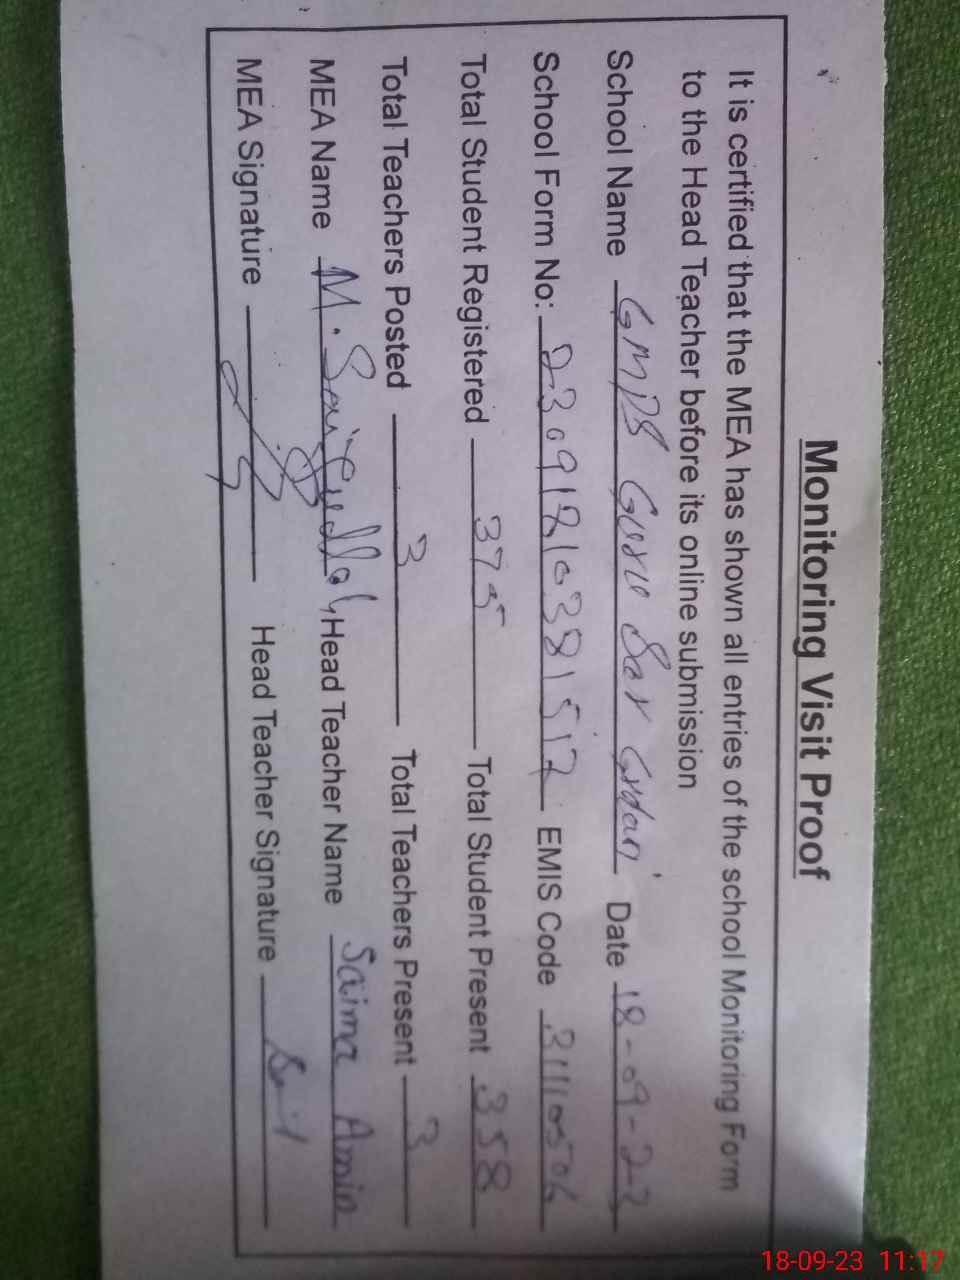 Monitoring Visit Proof
It is certified that the MEA has shown all entries of the school Monitoring Form
to the Head Teacher before its online submission
School Name GMPS Guru Sar Date 18-09-23
School Form No: 23091810381512 EMIS Code 31110506
Total Student Registered 375 Total Student Present 358
Total Teachers Posted 3 Total Teachers Present 3
MEA Name M. Saifullah Head Teacher Name Saima Amin
MEA Signature Head Teacher Signature
18-09-23 11:17